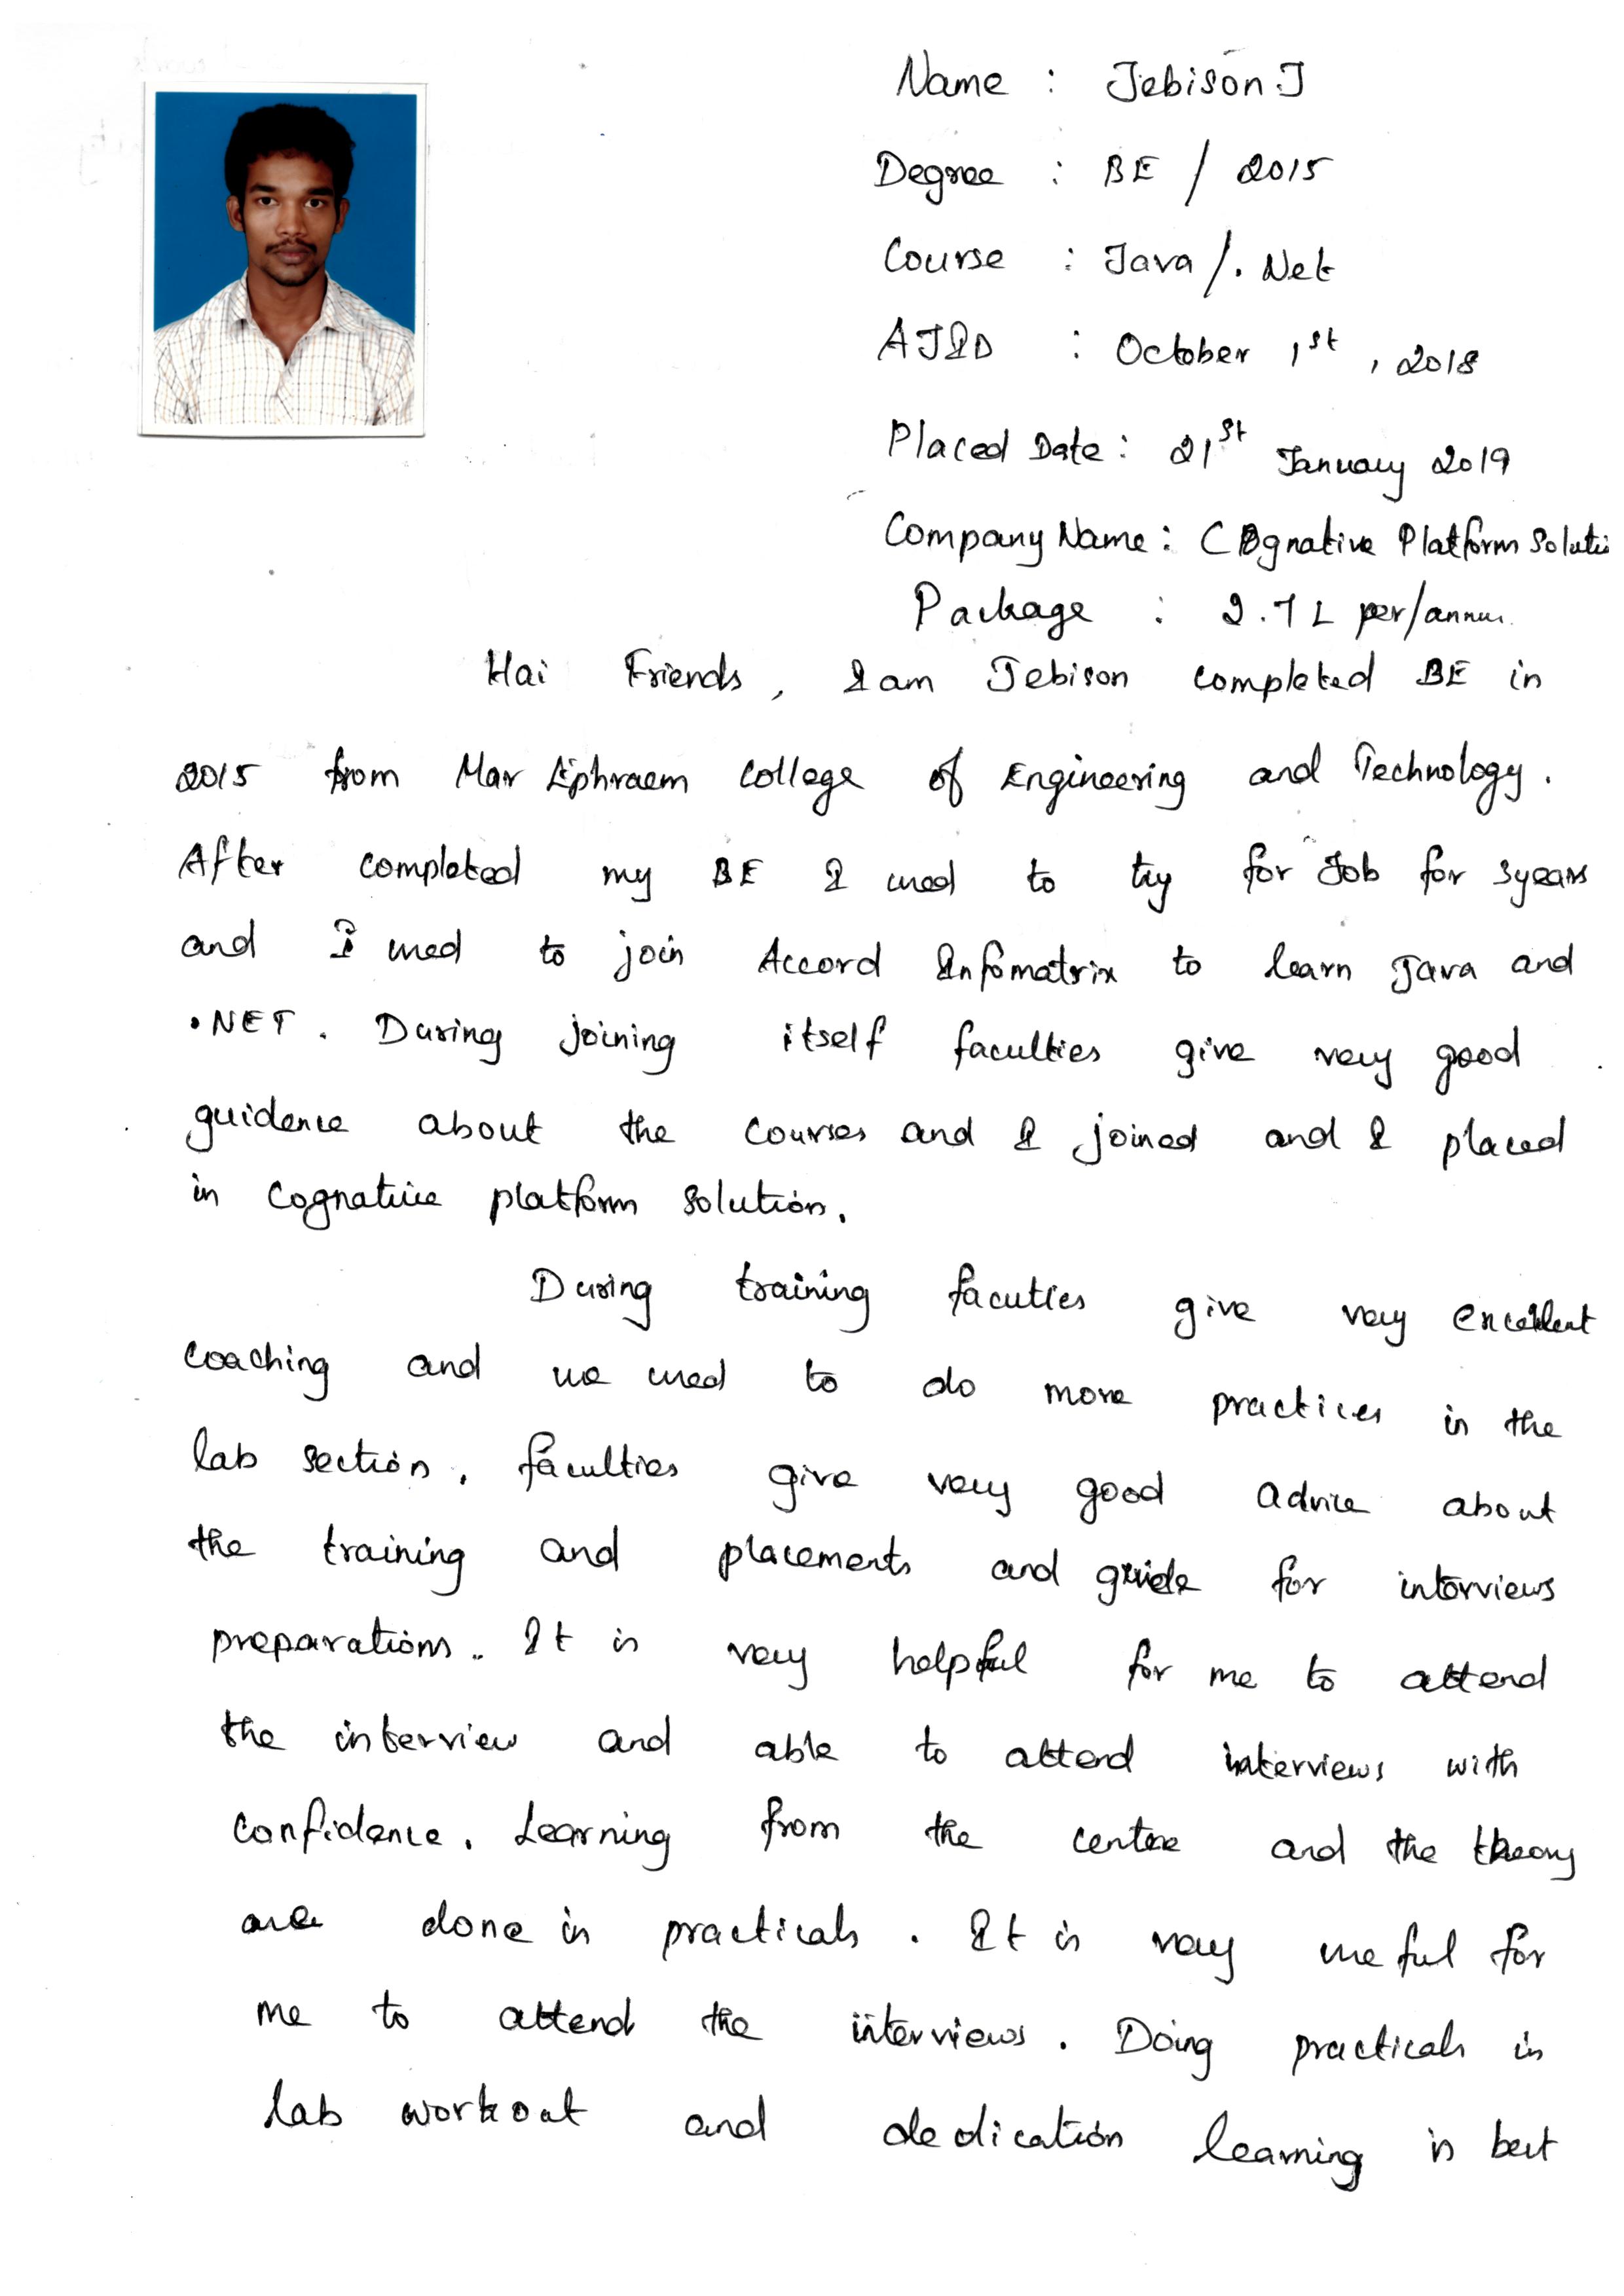 Name : Jebison J
Degree : BE / 2015
Course : Java /. Net
AJ&D : October 1st , 2018
Placed Date : 21st January 2019
Company Name : Cognative Platform Soluti
Package : 2.7 L per/annu
Hai Friends , I am Jebison completed BE in
2015 from Mar Ephraem College of Engineering and Technology .
After completed my BE I used to try for Job for 3years
and I used to join Accord Infomatrix to learn Java and
.NET . During joining itself faculties give very good
guidence about the courses and I joined and I placed
in Cognative platform Solution .
During training facuties give very excellent
coaching and we used to do more practices in the
lab section . faculties give very good advice about
the training and placements and guide for interviews
preparations .. It is very helpful for me to attend
the interview and able to attend interviews with
confidence . Learning from the centre and the theory
are done in practicals . It is very useful for
me to attend the interviews . Doing practicals in
lab workout and dedication learning is best